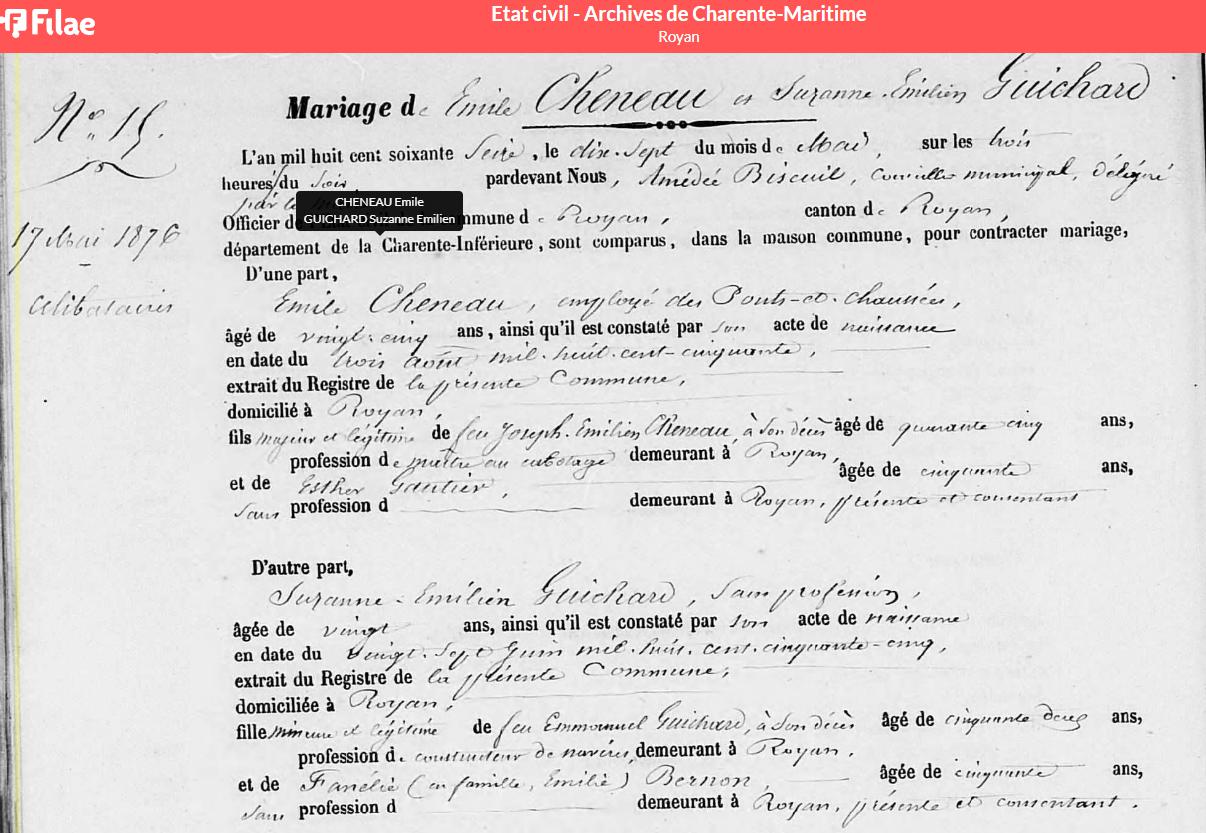 Filae
Etat civil - Archives de Charente-Maritime
Royan
Mariage de Emile Cheneau et Suzanne-Emilien Guichard
N° 15.
L'an mil huit cent soixante Seize, le dix-sept du mois de Mai, sur les trois
heures du soir, pardevant Nous, Amédée Biscuit, Conseiller municipal, délégué
par le
CHENEAU Emile
GUICHARD Suzanne Emilien
Officier de commune de Royan, canton de Royan,
17 Mai 1876
département de la Charente-Inférieure, sont comparus, dans la maison commune, pour contracter mariage,
D'une part,
Celibataires
Emile Cheneau, employé des Ponts-et-chaussées,
âgé de vingt-cinq ans, ainsi qu'il est constaté par son acte de naissance
en date du trois août mil-huit-cent-cinquante,
extrait du Registre de la présente Commune,
domicilié à Royan,
fils majeur et légitime de feu Joseph-Emilien Cheneau, à son décès âgé de quarante cinq ans,
profession de maître au cabotage demeurant à Royan,
et de Esther Gautier, âgée de cinquante ans,
sans profession d demeurant à Royan, présente et consentant
D'autre part,
Suzanne-Emilien Guichard, sans profession,
âgée de vingt ans, ainsi qu'il est constaté par son acte de naissance
en date du vingt-sept Juin mil-huit-cent-cinquante-cinq,
extrait du Registre de la présente Commune,
domiciliée à Royan,
fille mineure et légitime de feu Emmanuel Guichard, à son décès âgé de cinquante deux ans,
profession de constructeur de navires, demeurant à Royan,
et de Fanélie (en famille, Emilie) Bernon, âgée de cinquante ans,
sans profession d demeurant à Royan, présente et consentant.